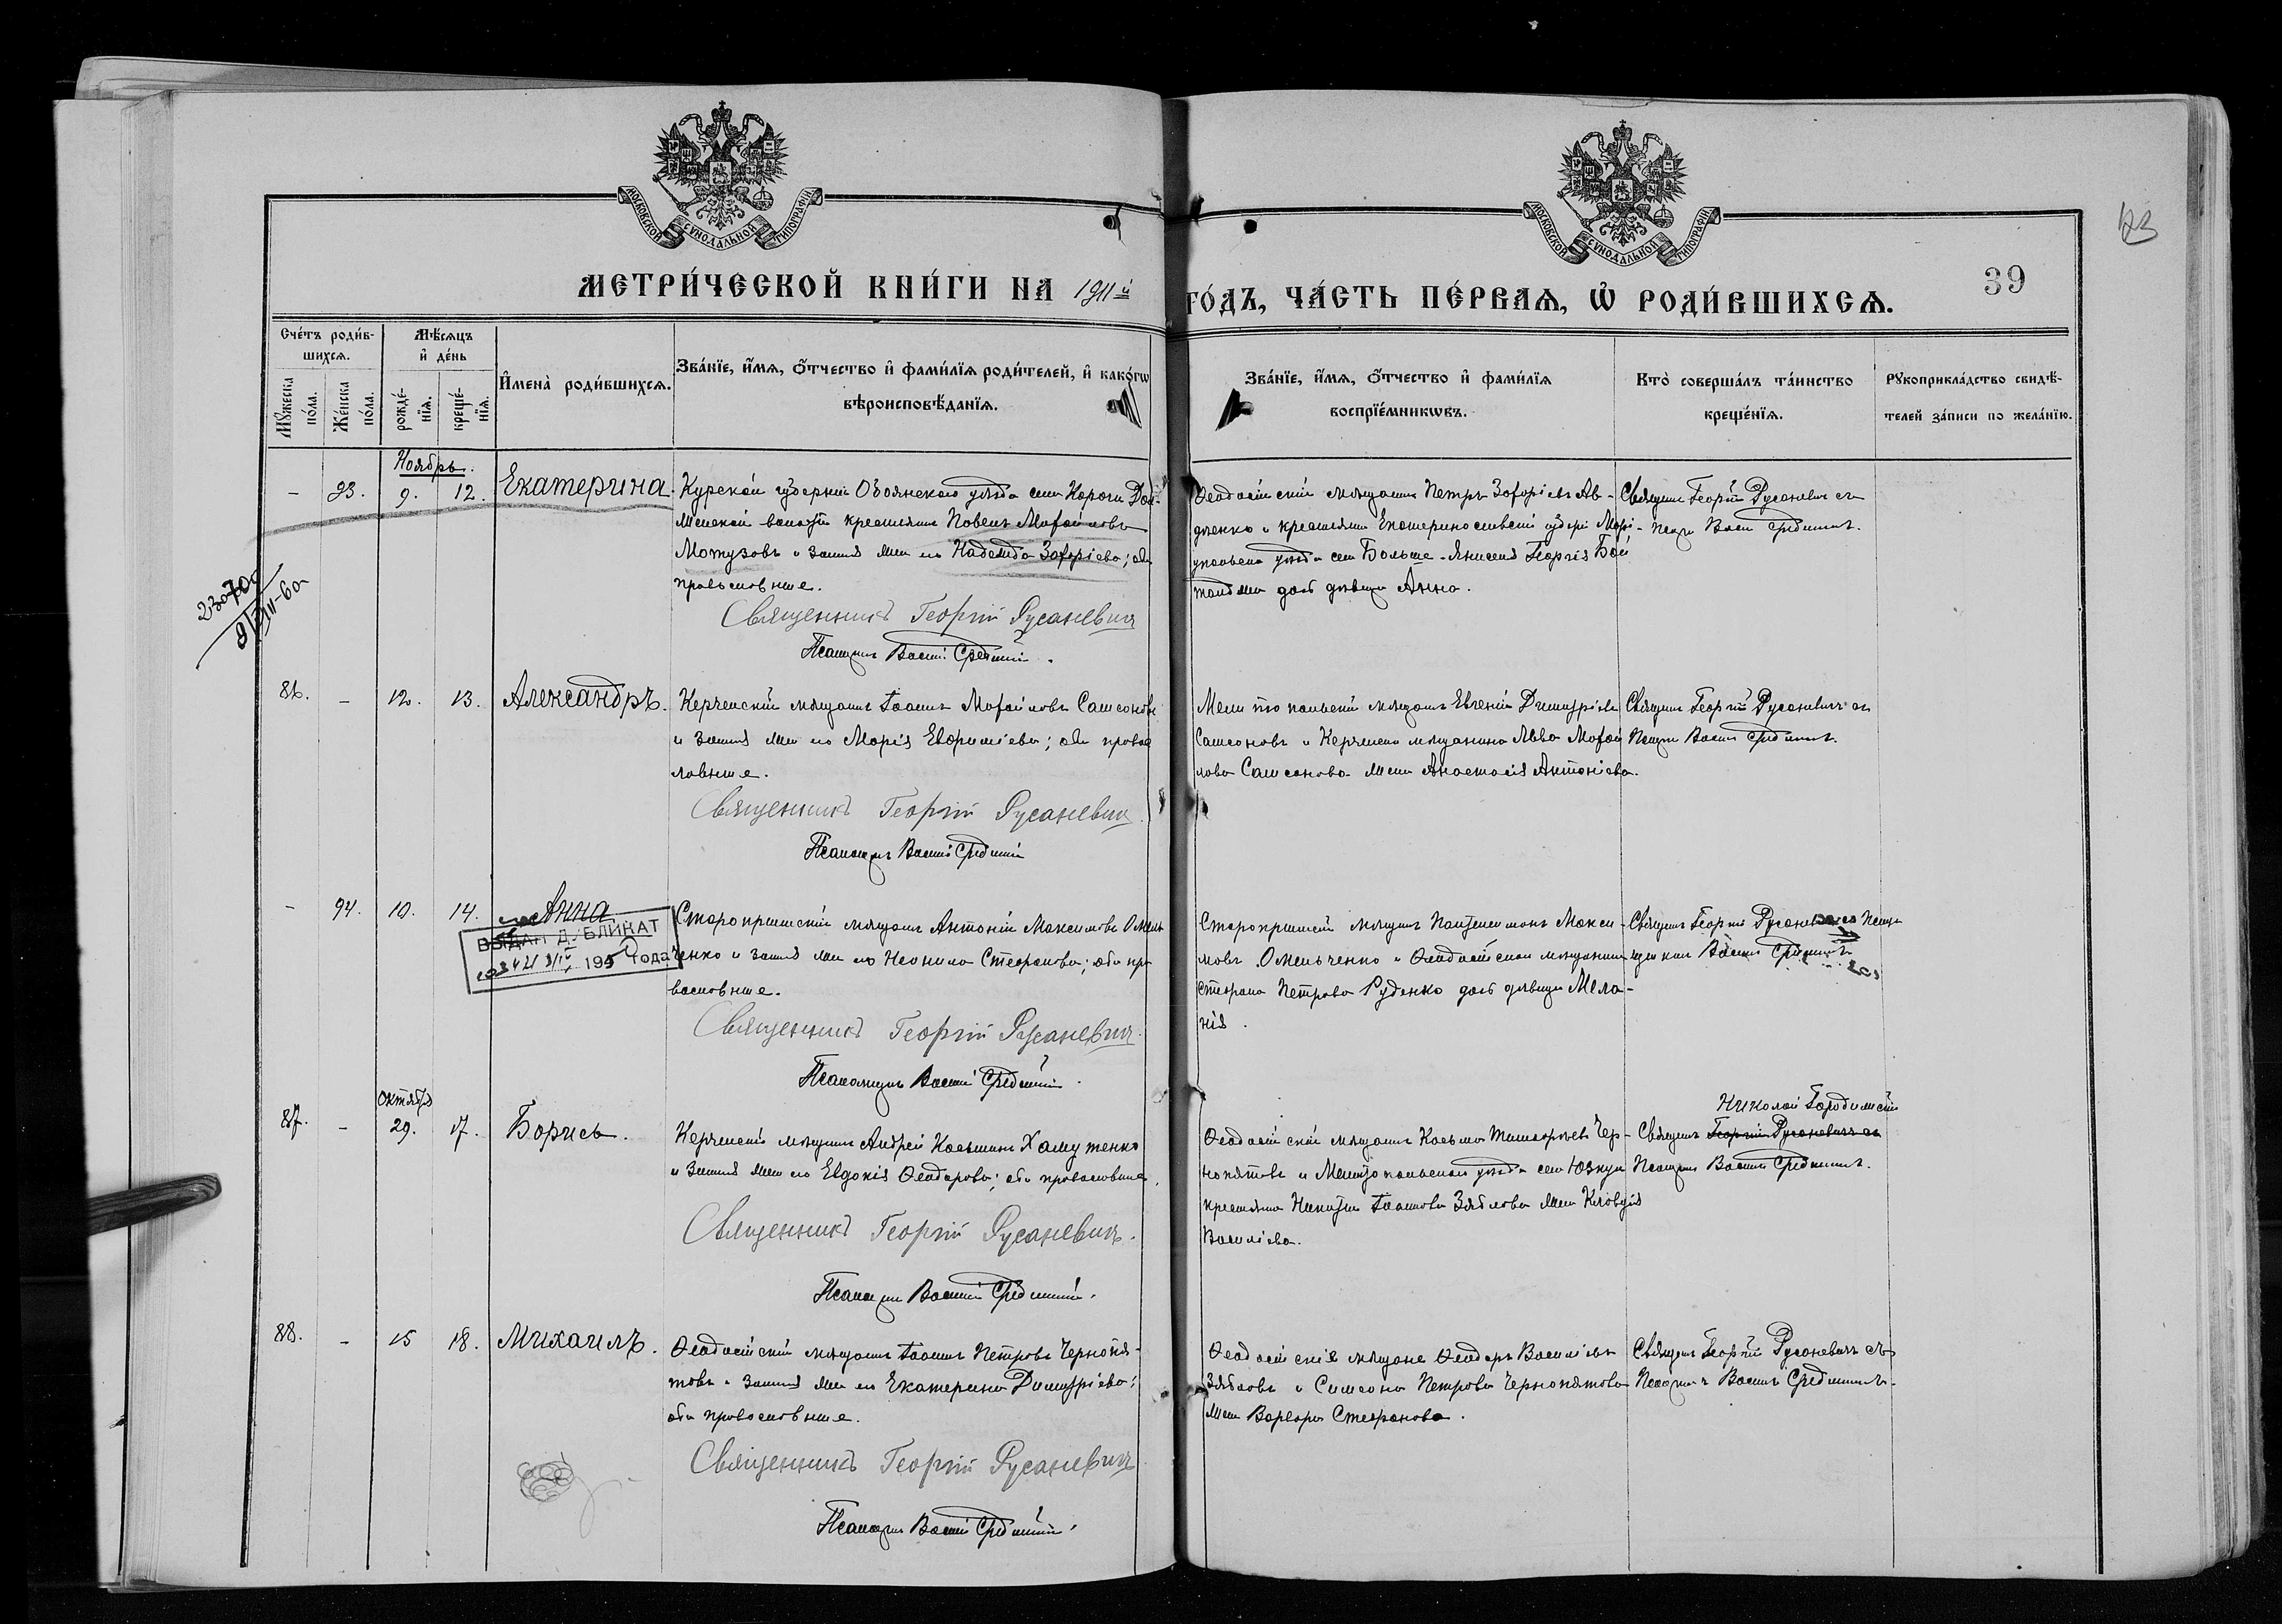 МОСКОВСКОЙ СѴНОДАЛЬНОЙ ТИПОГРАФІИ
МОСКОВСКОЙ СѴНОДАЛЬНОЙ ТИПОГРАФІИ
МЕТРИ́ЧЕСКОЙ КНИ́ГИ НА 1911й
ГО́ДЪ, ЧА́СТЬ ПЕ́РВАѦ, Ѡ҆ РОДИ́ВШИХСѦ.
39
Сче́тъ роди́в-
шихсѧ.
Мꙋжеска по́ла.
Же́нска по́ла.
Мѣ́сѧцъ и҆ де́нь
рожде́-нїѧ.
креще́-нїѧ.
И҆мена̀ роди́вшихсѧ.
Зва́нїе, и҆́мѧ, ѻ҆́тчество и҆ фами́лїѧ роди́телей, и҆ како́гѡ
вѣроисповѣ́данїѧ.
Зва́нїе, и҆́мѧ, ѻ҆́тчество и҆ фами́лїѧ
воспрїе́мникѡвъ.
Кто̀ соверша́лъ та́инство
креще́нїѧ.
Рꙋкоприкла́дство свидѣ́-
телей за́писи по жела́нїю.
Ноябрь.
- 93. 9. 12. Екатерина
Курской губерніи Обоянскаго уѣзда села
волости крестьянинъ Павелъ Михайловъ
Мотузовъ и законная жена его Надежда Захаріева; оба
православные.
Священникъ Георгій Русаневичъ
Псаломщикъ Василій Средин
Ѳеодосійскій мѣщанинъ Петръ Захаріевъ Ав-
дѣенко и крестьянина Екатеринославской губерніи Марі-
упольскаго уѣзда села Больше-Янисель Георгія
дочь дѣвица Анна.
Священникъ Георгій Русаневичъ съ
Псал. Васил. Срединымъ.
86. - 12. 13. Александръ.
Керченскій мѣщанинъ Іоаннъ Михайловъ Самсоновъ
и законная жена его Марія Евфиміева; оба право-
славные.
Священникъ Георгій Русаневичъ
Псаломщикъ Василій Средин
Мелитопольскій мѣщанинъ Евгеній Димитріевъ
Самсоновъ и Керченскаго мѣщанина Льва Михай-
лова Самсонова жена Анастасія Антоніева.
Священникъ Георгій Русаневичъ съ
Псаломщ. Васил. Срединымъ.
- 94. 10. 14. Анна
ВЫДАН ДУБЛИКАТ
195 года
Старокрымскій мѣщанинъ Антоній Максимовъ Омель-
ченко и законная жена его Неонила Стефанова; оба пра-
вославные.
Священникъ Георгій Русаневичъ
Псаломщикъ Василій Средин
Старокрымскій мѣщанинъ Пантелеимонъ Макси-
мовъ Омельченко и Ѳеодосійскаго мѣщанина
Стефана Петрова Руденко дочь дѣвица Мела-
нія.
Священникъ Георгій Русаневичъ съ Псалом-
щикомъ Васил. Срединымъ
Октября
87. - 29. 17. Борисъ.
Керченскій мѣщанинъ Андрей Косьминъ Хамутенко
и законная жена его Евдокія Ѳеодорова; оба православные.
Священникъ Георгій Русаневичъ.
Псаломщикъ Василій Средин
Ѳеодосійскій мѣщанинъ Косьма Тимофеевъ Чер-
нопятовъ и Мелитопольскаго уѣзда села
крестьянина Никиты Іоаннова Зяблова жена Клавдія
Василіева.
Николай
Священникъ Георгій Русаневичъ съ
Псаломщ. Васил. Срединымъ.
88. - 15 18. Михаилъ.
Ѳеодосійскій мѣщанинъ Іоаннъ Петровъ Чернопя-
товъ и законная жена его Екатерина Димитріева;
оба православные.
Священникъ Георгій Русаневичъ
Псаломщикъ Василій Средин
Ѳеодосійскіе мѣщане Ѳеодоръ Василіевъ
Зябловъ и Симеона Петрова Чернопятова
жена Варвара Стефанова.
Священникъ Георгій Русаневичъ съ
Псаломщ. Васил. Срединымъ.